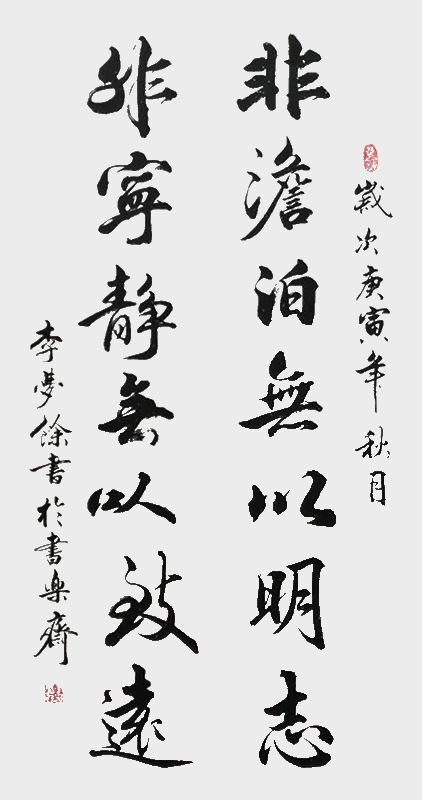 歲次庚寅年秋月
非澹泊無以明志
非寧靜無以致遠
李夢餘書於書樂齋